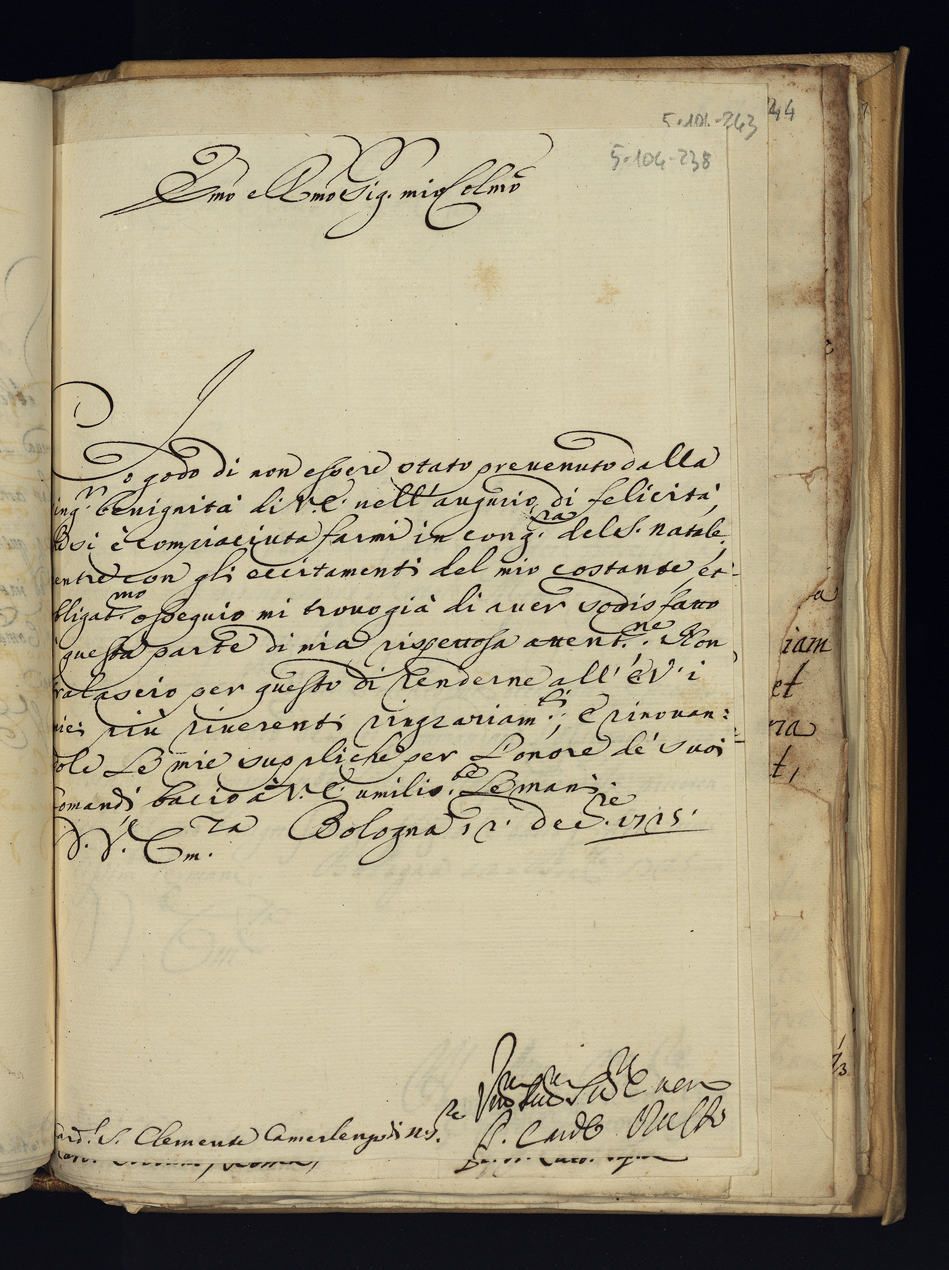 44
5-104-243
5-104-238
Emo e Rmo Sig. mio Colmo
Io godo di non essere stato prevenuto dalla
sing.r benignità di V.E. nell'augurio di felicità,
si è compiaciuta farmi in cong.ra del S. natale,
entre con gli eccitamenti del mio costante et-
bligat.mo ossequio mi trovo già di aver sodisfatto
questa parte di mia rispettosa attent.ne. Non
tralascio per questo di renderne all'E.V. i
miei più riverenti ringraziam.ti, e rinovan:
dole le mie suppliche per l'onore de' suoi
comandi bacio à V.E. umilis.te le mani.
D. V. Em.za Bologna 12. dec.re 1725.
ard.l S. Clemente Camerlengo di N.S.re
P. Card.
iam
et
ra
t,